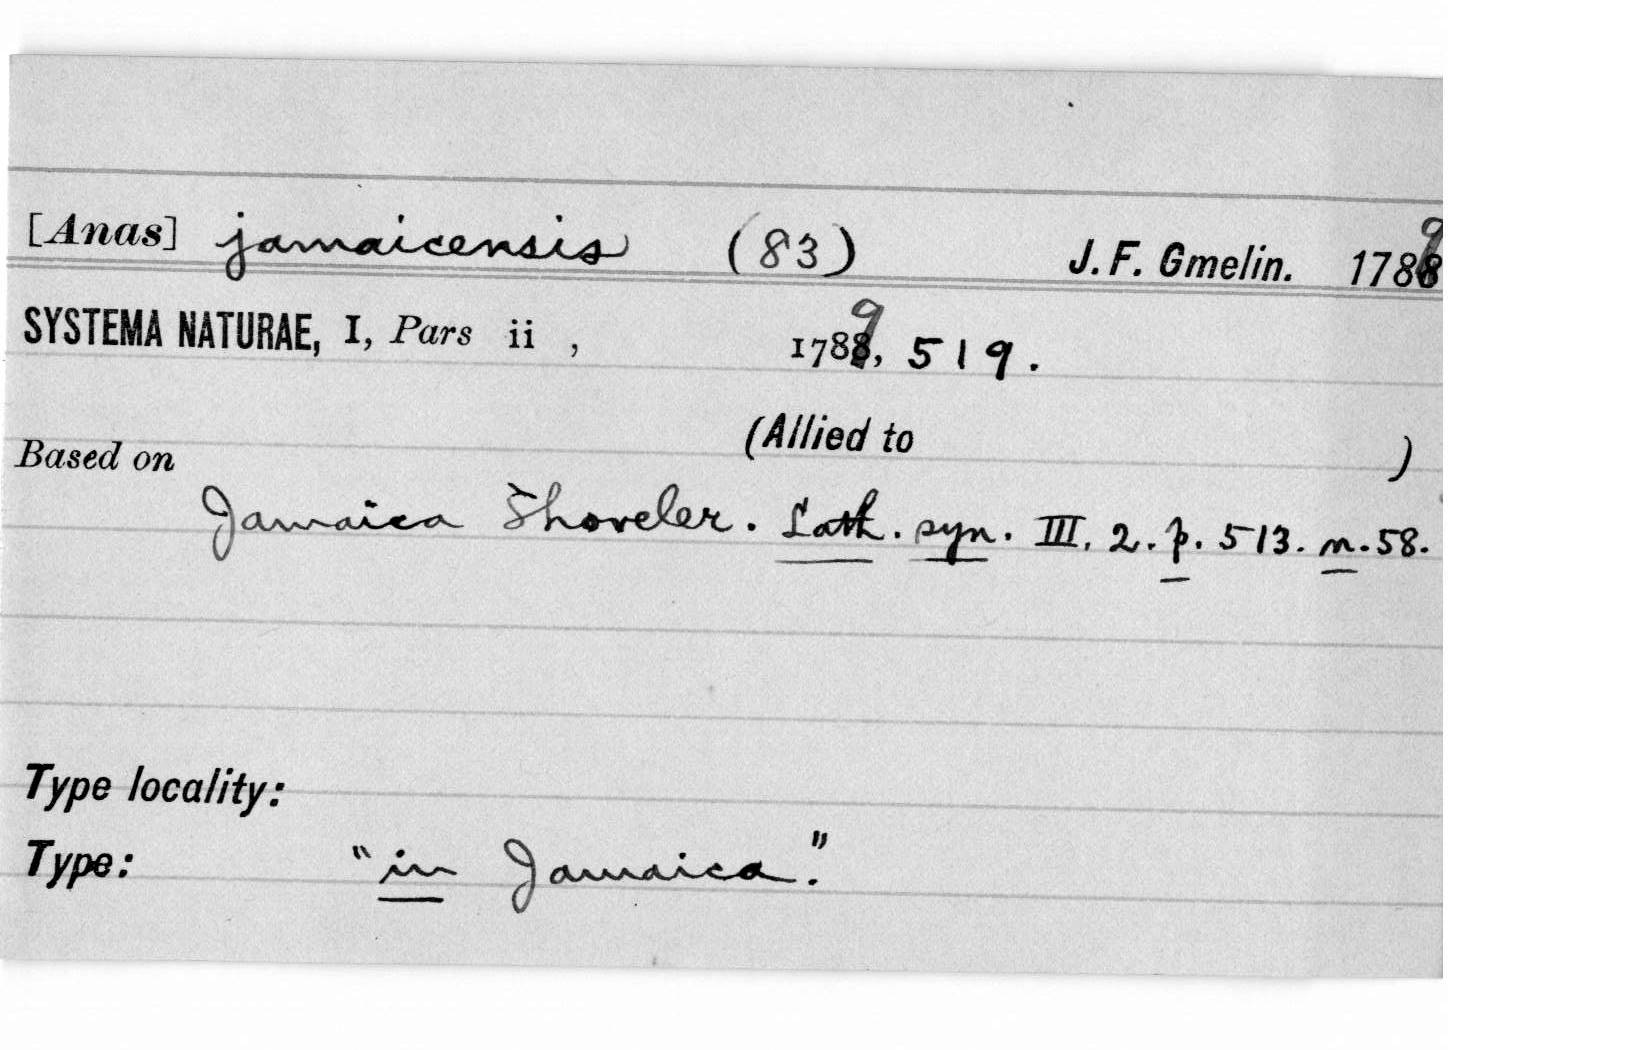 [Anas] jamaicensis (83) J. F. Gmelin. 1789
SYSTEMA NATURAE, I, Pars ii , 1789, 519.
(Allied to )
Based on
Jamaica Shoveler. Lath. syn. III. 2. p. 513. n. 58.
Type locality:
Type: "in Jamaica."